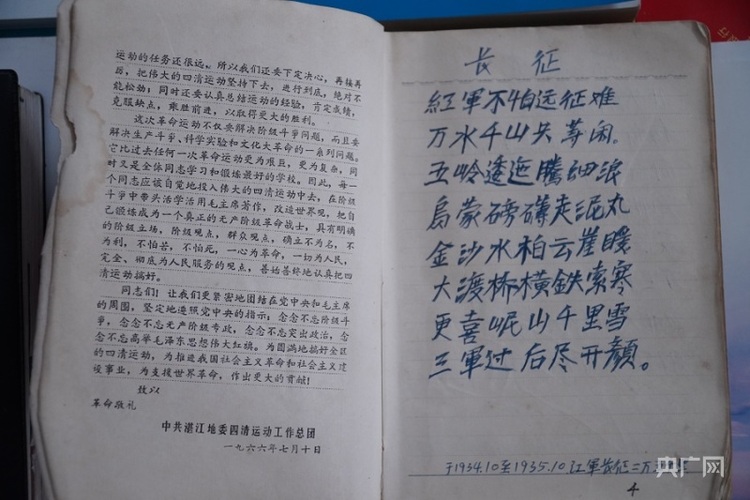 运动的任务还很远。所以我们还要下定决心，再接再
厉，把伟大的四清运动坚持下去，进行到底，绝对不
能松劲；同时还要认真总结运动的经验，肯定成绩，
克服缺点，乘胜前进，以取得更大的胜利。
这次革命运动不仅要解决阶级斗争问题，而且要
解决生产斗争、科学实验和文化大革命的一系列问题。
它比过去任何一次革命运动更为艰巨，更为复杂，同
时又是全体同志学习和锻炼最好的学校。因此，每一
个同志应该自觉地投入伟大的四清运动中去，在阶级
斗争中带头活学活用毛主席著作，改造世界观，把自
己锻炼成为一个真正的无产阶级革命战士，具有明确
的阶级立场，阶级观点，群众观点，确立不为名，不
为利，不怕苦，不怕死，一心为革命，一切为人民，
完全、彻底为人民服务的观点，善始善终地认真把四
清运动搞好。
同志们！让我们更紧密地团结在党中央和毛主席
的周围，坚定地遵照党中央的指示：念念不忘阶级斗
争，念念不忘无产阶级专政，念念不忘突出政治，念
念不忘高举毛泽东思想伟大红旗。为圆满地搞好全区
的四清运动，为推进我国社会主义革命和社会主义建
设事业，为支援世界革命，作出更大的贡献！
致以
革命敬礼
中共湛江地委四清运动工作总团
一九六六年七月十日
长征
紅軍不怕远征难
万水千山只等闲。
五岭逶迤騰細浪
烏蒙磅礴走泥丸
金沙水拍云崖暖
大渡桥橫鉄索寒
更喜岷山千里雪
三軍过后尽开顏。
于1934.10至1935.10江軍長征二万
4
央广网